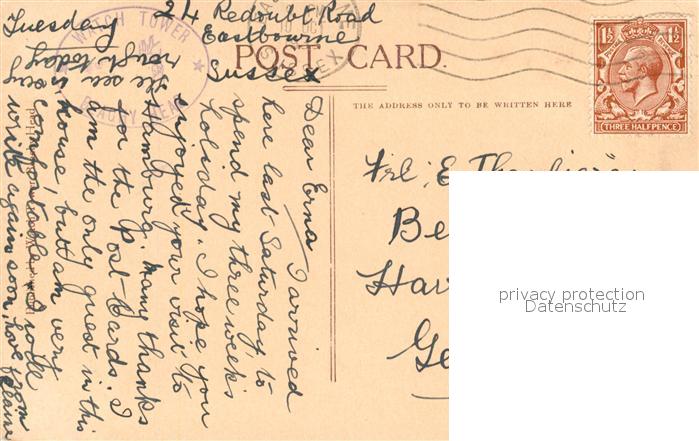 Tuesday
24 Redoubt Road
Eastbourne
Sussex
WATCH TOWER
BEACHY HEAD
POST CARD.
THE ADDRESS ONLY TO BE WRITTEN HERE
1½ 1½
THREE HALFPENCE
Dear Erna
I arrived
here last Saturday, to
spend my three weeks
holiday. I hope you
enjoyed your visit to
Hamburg. Many thanks
for the Post-Cards. I
am the only guest in this
house, but am very
comfortable. I will
write again soon, love from
The sea is very
rough today
Frl. E.
Be
Hav
Ge
privacy protection
Datenschutz